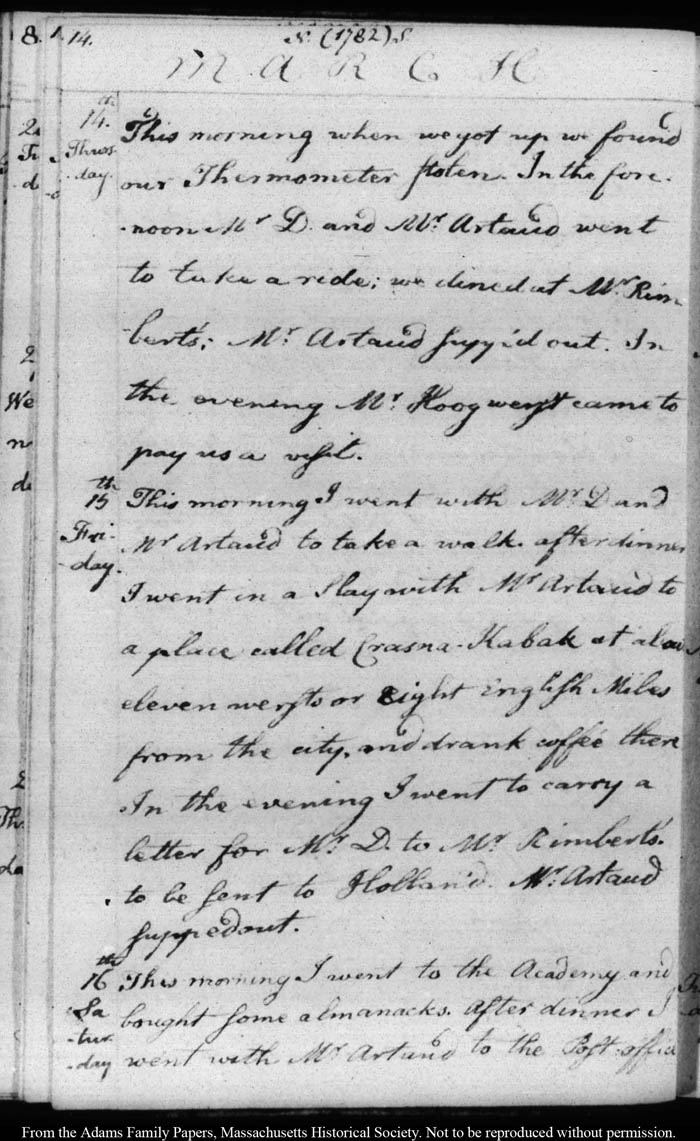 8. 14. N. (1782) S.
MARCH
14.th Thurs-day. This morning when we got up we found
our Thermometer stolen. In the fore-
-noon Mr. D. and Mr. Artaud went
to take a ride; we dined at Mr. Rim-
bert's; Mr. Artaud supp'd out. In
the evening Mr. Hoogwerft came to
pay us a visit.
15th Fri-day. This morning I went with Mr. D and
Mr Artaud to take a walk. after dinner
I went in a Slay with Mr Artaud to
a place called Crasna-Kabak at
eleven wersts or eight English Miles
from the city, and drank coffee there
In the evening I went to carry a
letter for Mr. D. to Mr. Rimbert's.
to be sent to Holland. Mr. Artaud
supped out.
16th Sa-tur-day This morning I went to the Academy and
bought some almanacks. After dinner I
went with Mr. Artaud to the Post-offic
From the Adams Family Papers, Massachusetts Historical Society. Not to be reproduced without permission.